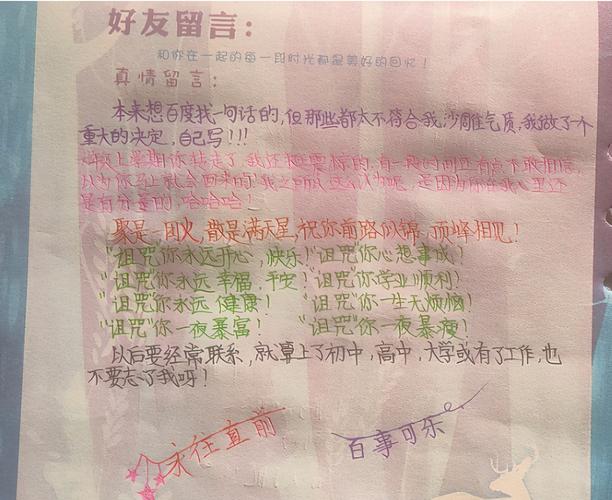 好友留言：
和你在一起的每一段时光都是美好的回忆！
真情留言：
本来想百度找一句话的，但那些都太不符合我沙雕气质，我做了一个
重大的决定，自己写！！！
上学期你转走了，我还挺震惊的，有一段时间还有点不敢相信，
以为你马上就会回来的！我之所以这么认为呢，是因为你在我心里还
是有分量的，哈哈哈！
聚是一团火，散是满天星，祝你前路似锦，顶峰相见！
"诅咒"你永远开心，快乐！"诅咒"你心想事成！
"诅咒"你永远幸福，平安！"诅咒"你学业顺利！
"诅咒"你永远健康！ "诅咒"你一生无烦恼！
"诅咒"你一夜暴富！ "诅咒"你一夜暴瘦！
以后要经常联系，就算上了初中，高中，大学或有了工作，也
不要忘了我呀！
永往直前
百事可乐